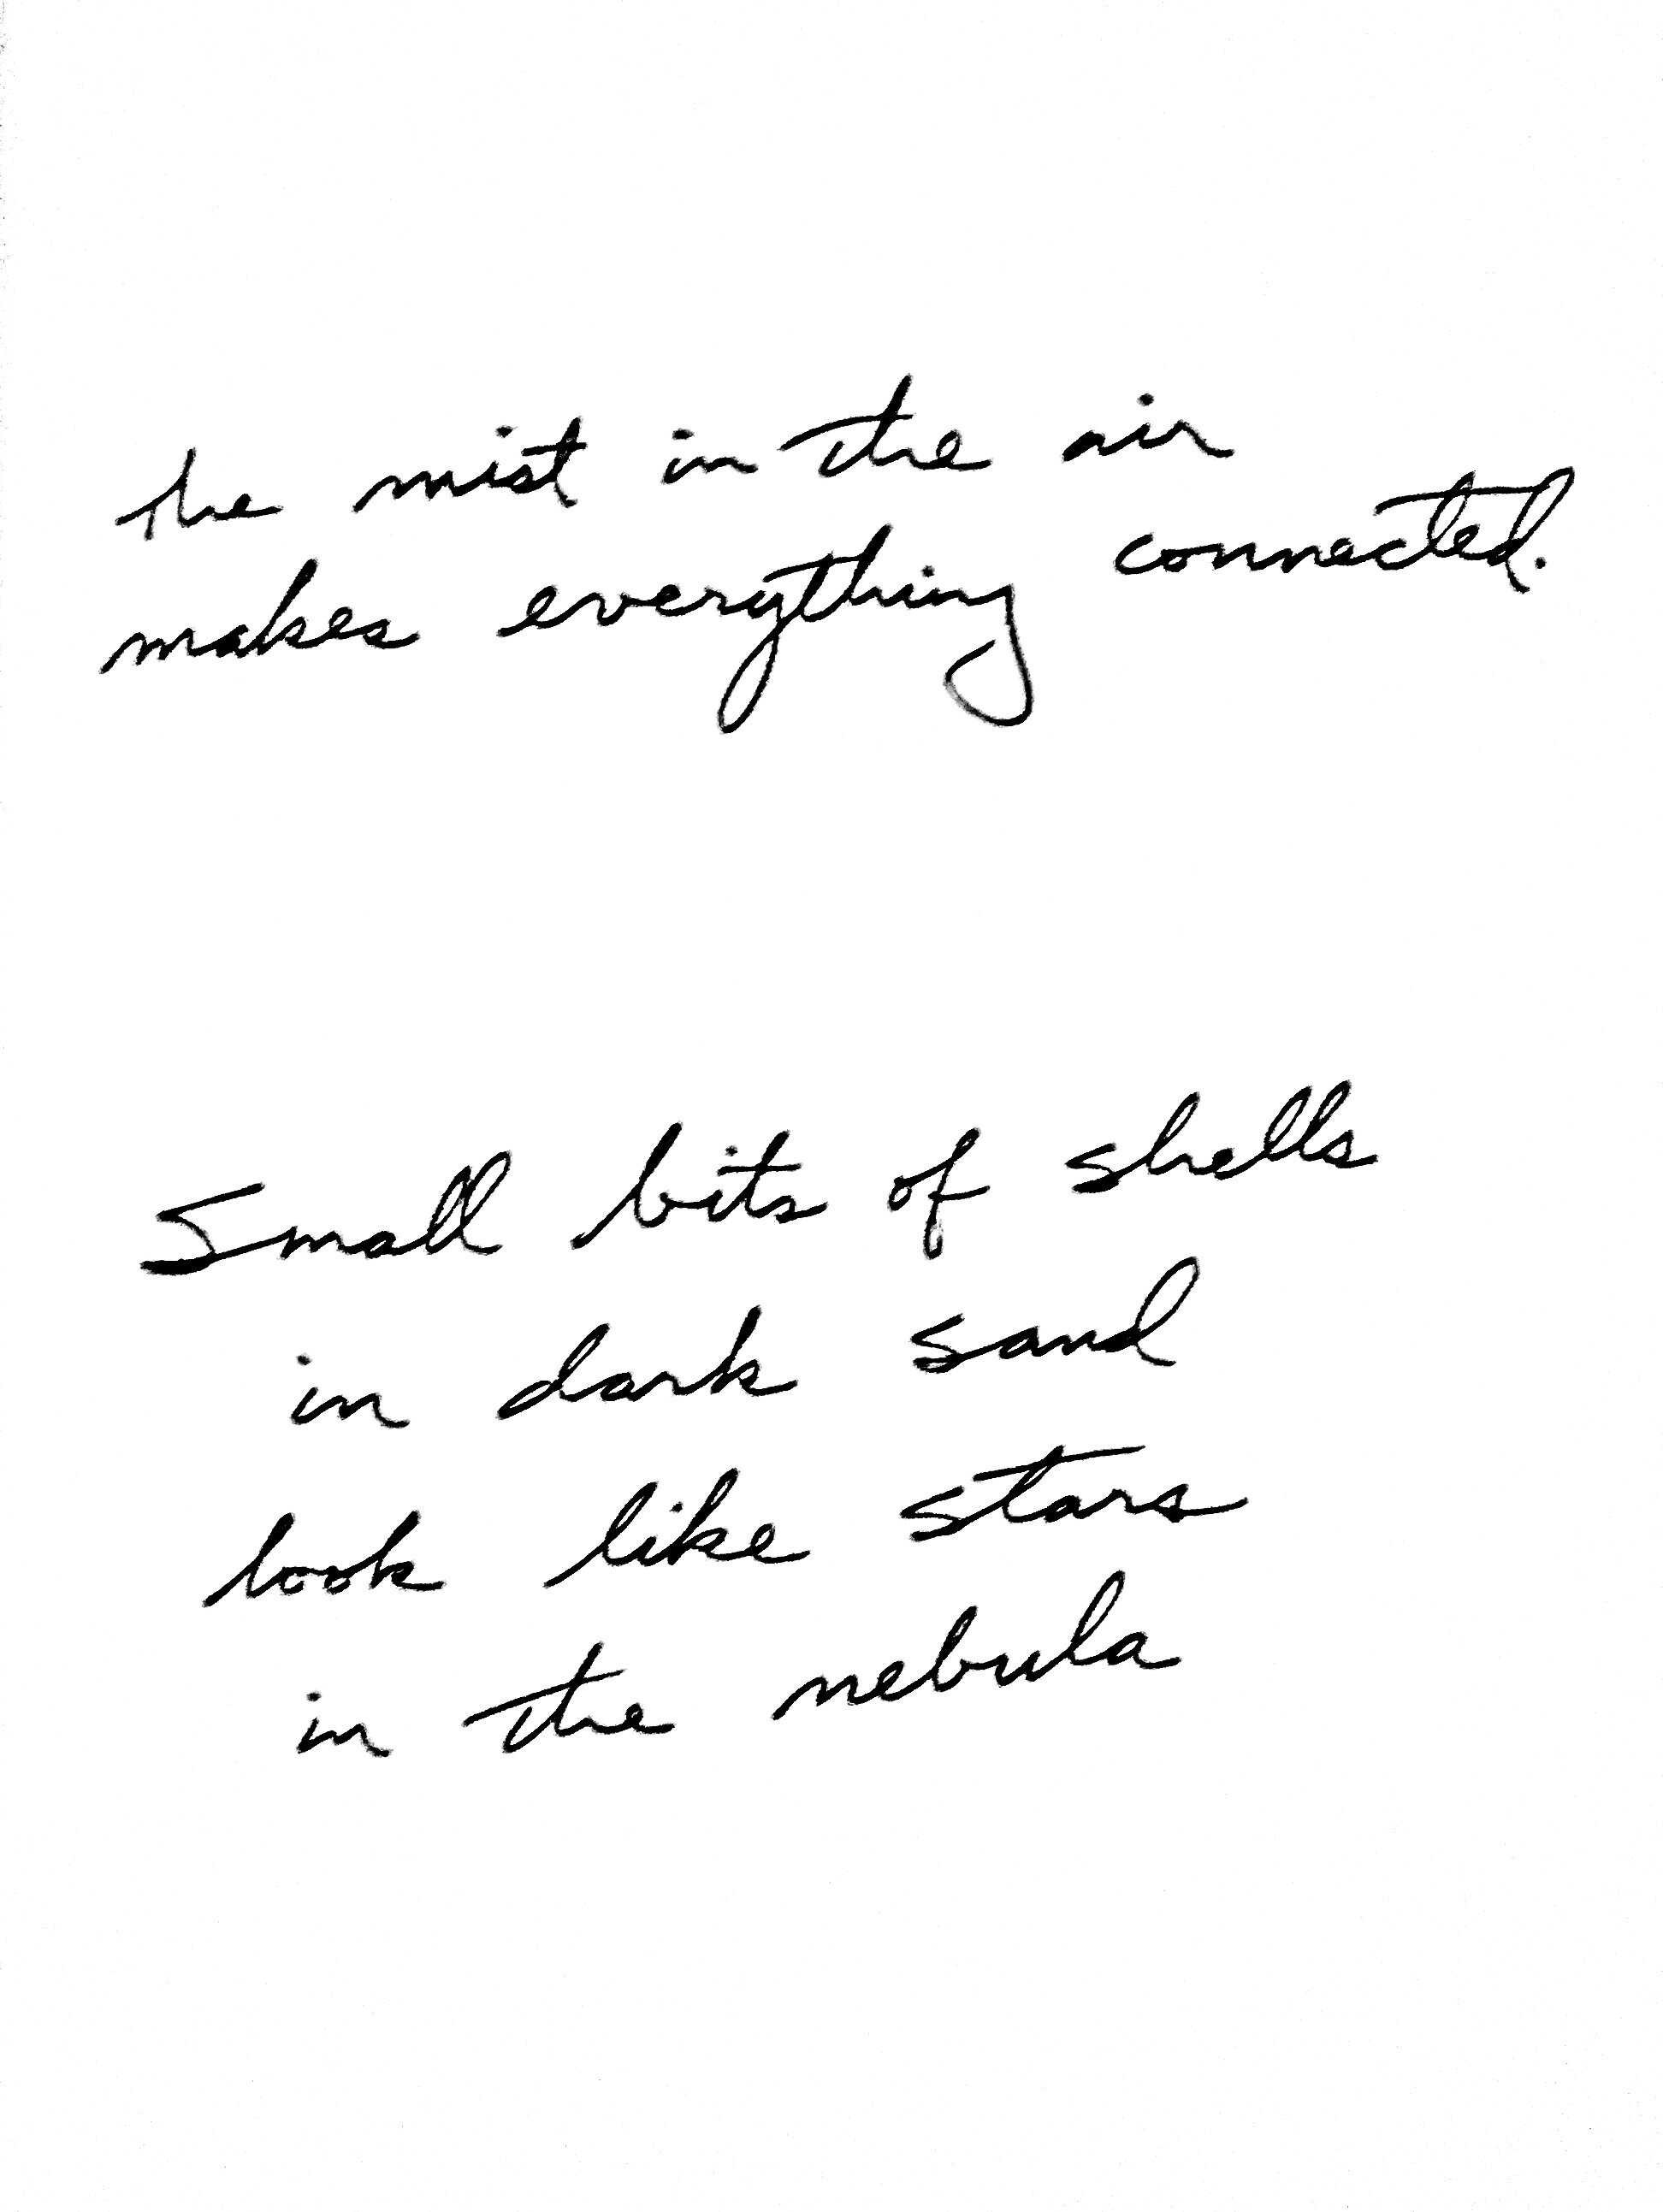 the mist in the air
makes everything connected.
Small bits of shells
in dark sand
look like stars
in the nebula